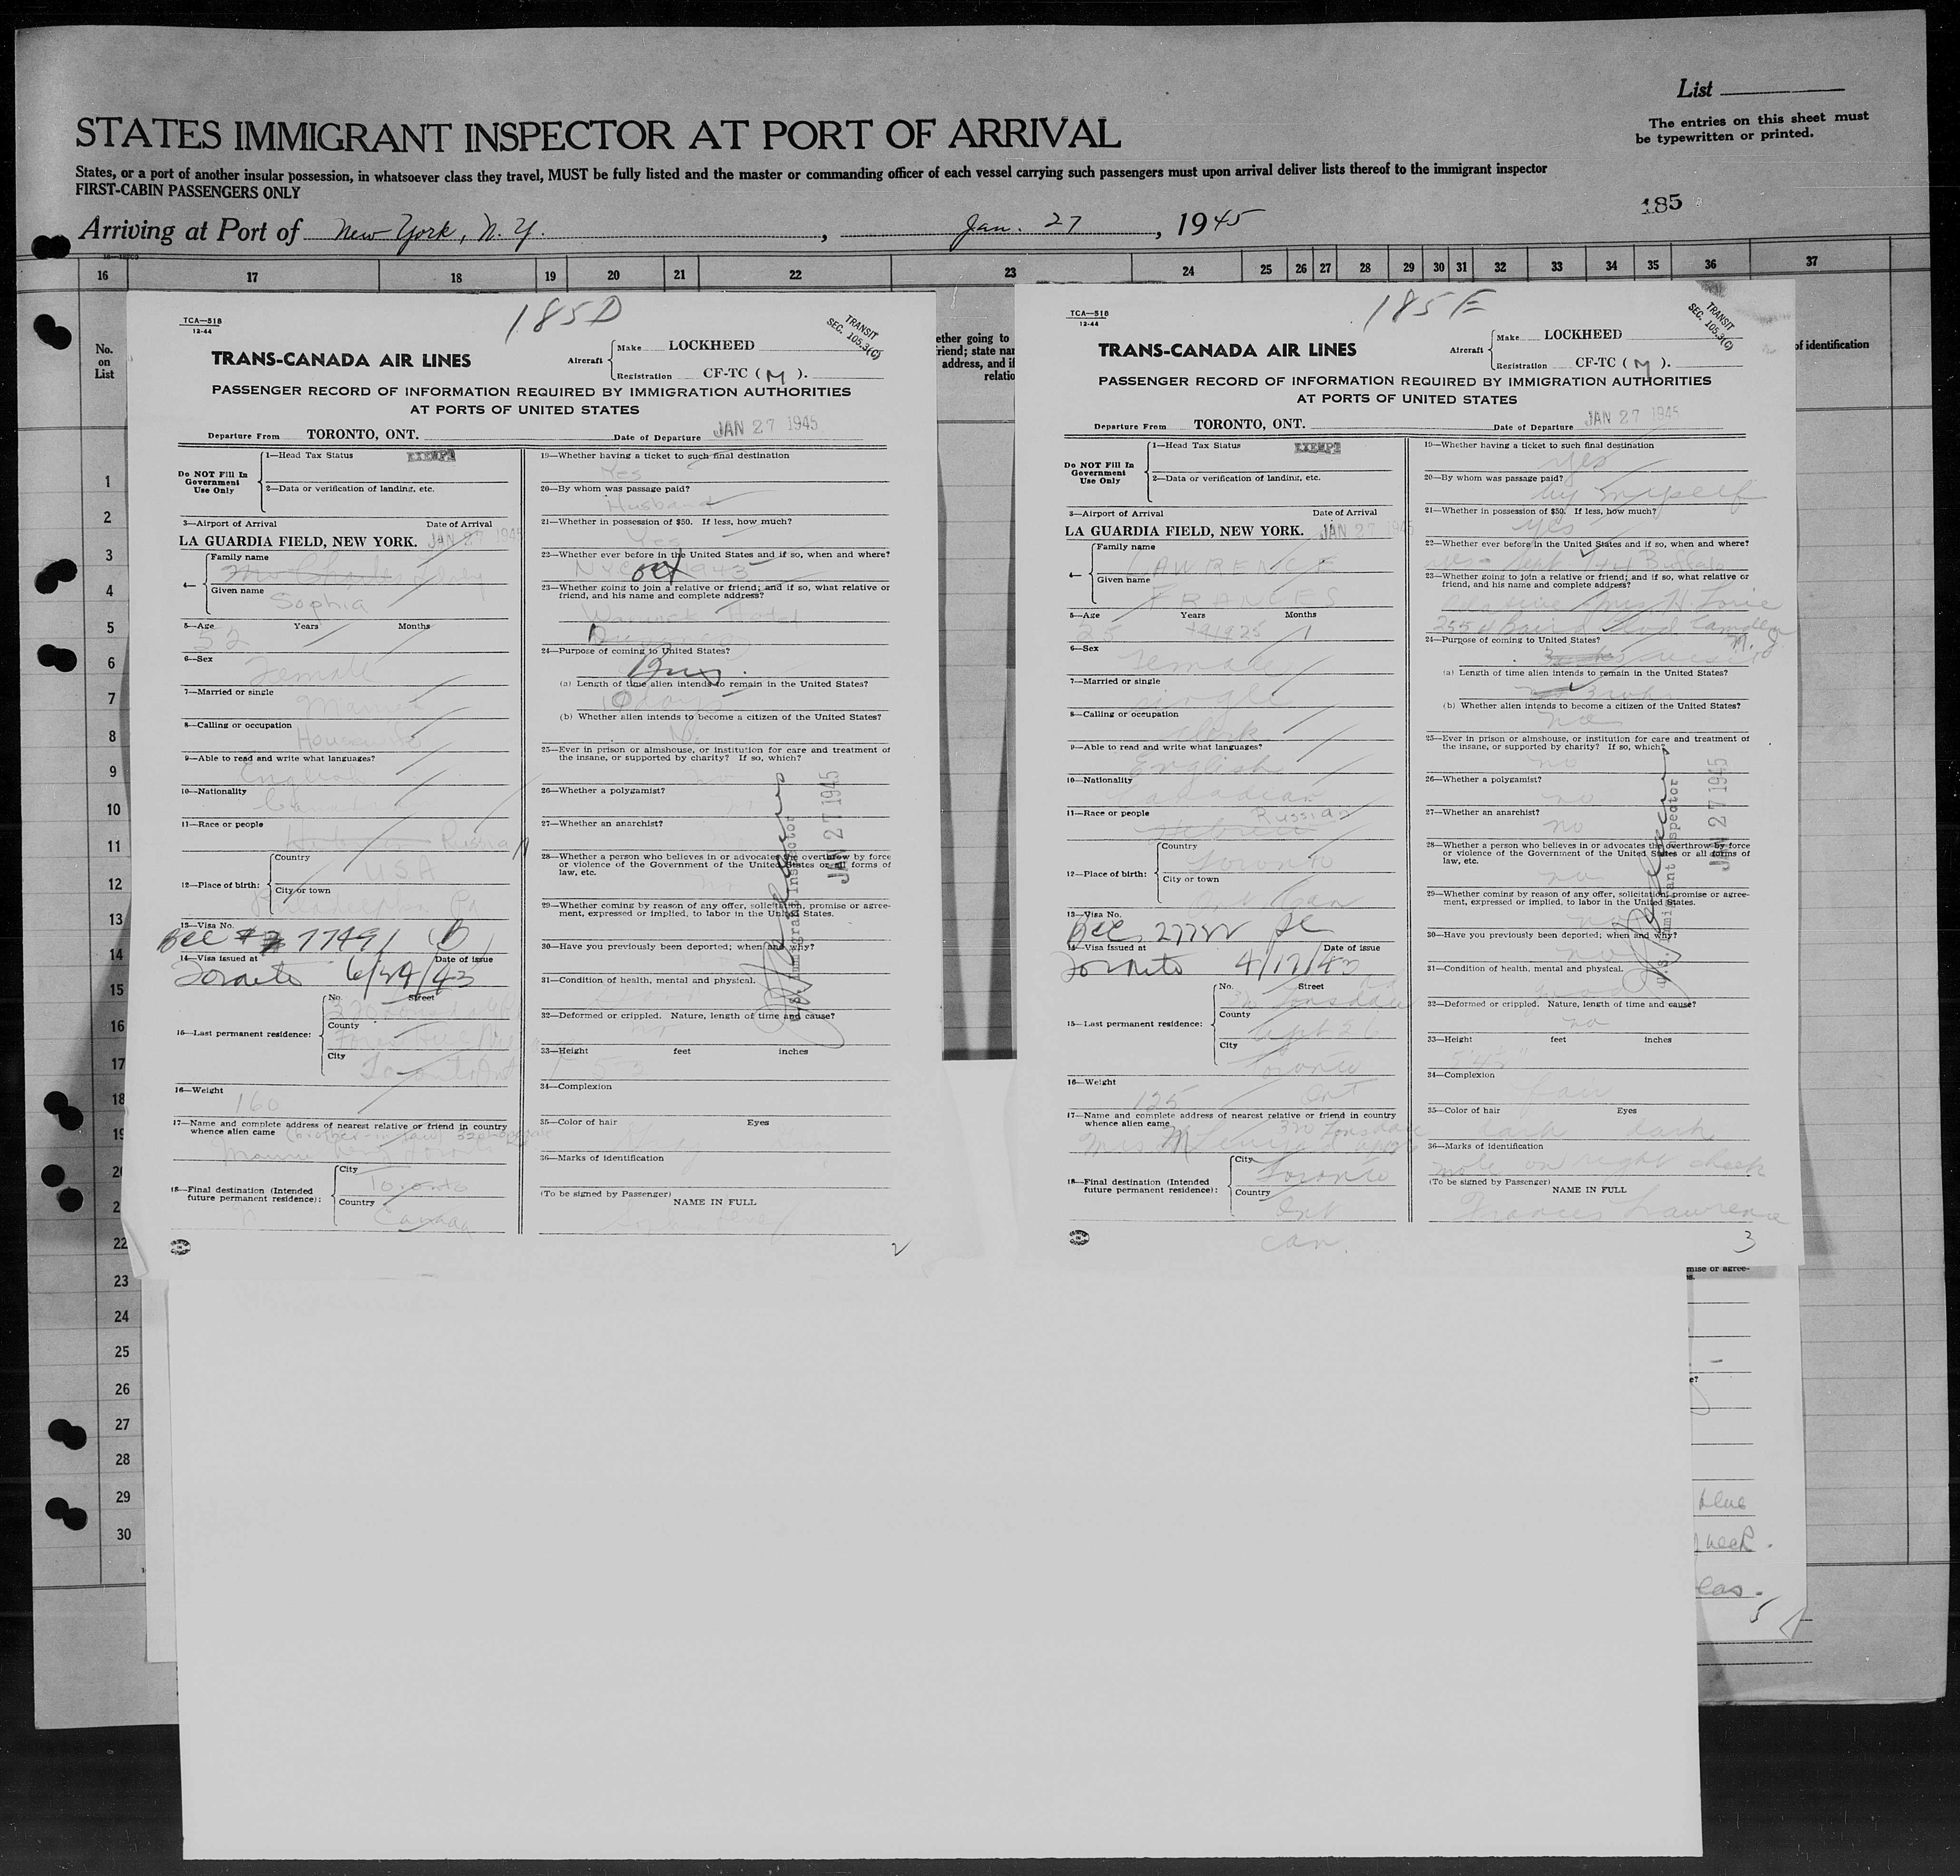 List
STATES IMMIGRANT INSPECTOR AT PORT OF ARRIVAL
The entries on this sheet must
be typewritten or printed.
States, or a port of another insular possession, in whatsoever class they travel, MUST be fully listed and the master or commanding officer of each vessel carrying such passengers must upon arrival deliver lists thereof to the immigrant inspector
FIRST-CABIN PASSENGERS ONLY
185
Arriving at Port of New York, N. Y. , Jan. 27 , 1945
16 17 18 19 20 21 22 23 24 25 26 27 28 29 30 31 32 33 34 35 36 37
No.
on
List
1
2
3
4
5
6
7
8
9
10
11
12
13
14
15
16
17
18
19
20
2
22
23
24
25
26
27
28
29
30
185D
TCA—518
12-44
TRANSIT
SEC. 105.3(C)
TRANS-CANADA AIR LINES
Aircraft
Make LOCKHEED
Registration CF-TC ( M ).
PASSENGER RECORD OF INFORMATION REQUIRED BY IMMIGRATION AUTHORITIES
AT PORTS OF UNITED STATES
Departure From TORONTO, ONT. Date of Departure JAN 27 1945
Do NOT Fill In
Government
Use Only
1—Head Tax Status EXEMPT
2—Data or verification of landing, etc.
3—Airport of Arrival Date of Arrival
LA GUARDIA FIELD, NEW YORK. JAN 27 1945
4—
Family name
Given name
Sophia
5—Age Years Months
52
6—Sex
Female
7—Married or single
Married
8—Calling or occupation
Housewife
9—Able to read and write what languages?
English
10—Nationality
11—Race or people
Russian
12—Place of birth:
Country
USA
City or town
Philadelphia Pa
13—Visa No.
BCC # 77491 (B)
14—Visa issued at Date of issue
Toronto 6/29/43
15—Last permanent residence:
No. Street
County
City
Toronto Ont
16—Weight
160
17—Name and complete address of nearest relative or friend in country
whence alien came (brother-in-law)
18—Final destination (Intended
future permanent residence):
City
Toronto
Country
Canada
19—Whether having a ticket to such final destination
Yes
20—By whom was passage paid?
Husband
21—Whether in possession of $50. If less, how much?
Yes
22—Whether ever before in the United States and if so, when and where?
NYC Oct 1943
23—Whether going to join a relative or friend; and if so, what relative or
friend, and his name and complete address?
Warwick Hotel
24—Purpose of coming to United States?
Bus.
(a) Length of time alien intends to remain in the United States?
10 days
(b) Whether alien intends to become a citizen of the United States?
No
25—Ever in prison or almshouse, or institution for care and treatment of
the insane, or supported by charity? If so, which?
26—Whether a polygamist?
27—Whether an anarchist?
28—Whether a person who believes in or advocates the overthrow by force
or violence of the Government of the United States or all forms of
law, etc.
29—Whether coming by reason of any offer, solicitation, promise or agree-
ment, expressed or implied, to labor in the United States.
30—Have you previously been deported; when and why?
31—Condition of health, mental and physical.
32—Deformed or crippled. Nature, length of time and cause?
33—Height feet inches
34—Complexion
35—Color of hair Eyes
36—Marks of identification
(To be signed by Passenger)
NAME IN FULL
U.S. Immigrant Inspector
JAN 27 1945
2
ether going to
riend; state nam
address, and if
relatio
185E
TCA—518
12-44
TRANSIT
SEC. 105.3(C)
of identification
TRANS-CANADA AIR LINES
Aircraft
Make LOCKHEED
Registration CF-TC ( M ).
PASSENGER RECORD OF INFORMATION REQUIRED BY IMMIGRATION AUTHORITIES
AT PORTS OF UNITED STATES
Departure From TORONTO, ONT. Date of Departure JAN 27 1945
Do NOT Fill In
Government
Use Only
1—Head Tax Status EXEMPT
2—Data or verification of landing, etc.
3—Airport of Arrival Date of Arrival
LA GUARDIA FIELD, NEW YORK. JAN 27 1945
4—
Family name
LAWRENCE
Given name
FRANCES
5—Age Years Months
25
6—Sex
Female
7—Married or single
Single
8—Calling or occupation
Clerk
9—Able to read and write what languages?
English
10—Nationality
Canadian
11—Race or people
Hebrew Russian
12—Place of birth:
Country
Toronto
City or town
Ont Can
13—Visa No.
BCC 27722
14—Visa issued at Date of issue
Toronto 4/17/43
15—Last permanent residence:
No. Street
320 Lonsdale Rd
County
Apt 26
City
Toronto
Ont
16—Weight
125
17—Name and complete address of nearest relative or friend in country
whence alien came 320 Lonsdale
18—Final destination (Intended
future permanent residence):
City
Toronto
Country
Ont
Can.
19—Whether having a ticket to such final destination
yes
20—By whom was passage paid?
by myself
21—Whether in possession of $50. If less, how much?
yes
22—Whether ever before in the United States and if so, when and where?
yes - Sept 1944 Buffalo
23—Whether going to join a relative or friend; and if so, what relative or
friend, and his name and complete address?
Camden
N. J.
24—Purpose of coming to United States?
(a) Length of time alien intends to remain in the United States?
(b) Whether alien intends to become a citizen of the United States?
no
25—Ever in prison or almshouse, or institution for care and treatment of
the insane, or supported by charity? If so, which?
no
26—Whether a polygamist?
no
27—Whether an anarchist?
no
28—Whether a person who believes in or advocates the overthrow by force
or violence of the Government of the United States or all forms of
law, etc.
no
29—Whether coming by reason of any offer, solicitation, promise or agree-
ment, expressed or implied, to labor in the United States.
no
30—Have you previously been deported; when and why?
no
31—Condition of health, mental and physical.
good
32—Deformed or crippled. Nature, length of time and cause?
no
33—Height feet inches
34—Complexion
fair
35—Color of hair Eyes
dark dark
36—Marks of identification
mole on right cheek
(To be signed by Passenger)
NAME IN FULL
Frances Lawrence
U.S. Immigrant Inspector
JAN 27 1945
3
mise or agree-
es.
e?
blue
neck.
5